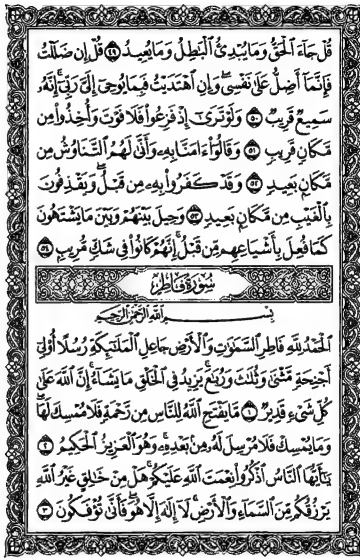 قُلْ جَآءَ ٱلْحَقُّ وَمَا يُبْدِئُ ٱلْبَٰطِلُ وَمَا يُعِيدُ ٤٩ قُلْ إِن ضَلَلْتُ
فَإِنَّمَآ أَضِلُّ عَلَىٰ نَفْسِى وَإِنِ ٱهْتَدَيْتُ فَبِمَا يُوحِىٓ إِلَىَّ رَبِّىٓ إِنَّهُۥ
سَمِيعٌ قَرِيبٌ ٥٠ وَلَوْ تَرَىٰٓ إِذْ فَزِعُوا۟ فَلَا فَوْتَ وَأُخِذُوا۟ مِن
مَّكَانٍ قَرِيبٍ ٥١ وَقَالُوٓا۟ ءَامَنَّا بِهِۦ وَأَنَّىٰ لَهُمُ ٱلتَّنَاوُشُ مِن
مَّكَانٍۭ بَعِيدٍ ٥٢ وَقَدْ كَفَرُوا۟ بِهِۦ مِن قَبْلُ وَيَقْذِفُونَ
بِٱلْغَيْبِ مِن مَّكَانٍۭ بَعِيدٍ ٥٣ وَحِيلَ بَيْنَهُمْ وَبَيْنَ مَا يَشْتَهُونَ
كَمَا فُعِلَ بِأَشْيَاعِهِم مِّن قَبْلُ إِنَّهُمْ كَانُوا۟ فِى شَكٍّ مُّرِيبٍۭ ٥٤
سُورَةُ فَاطِرٍ
بِسْمِ ٱللَّهِ ٱلرَّحْمَٰنِ ٱلرَّحِيمِ
ٱلْحَمْدُ لِلَّهِ فَاطِرِ ٱلسَّمَٰوَٰتِ وَٱلْأَرْضِ جَاعِلِ ٱلْمَلَٰٓئِكَةِ رُسُلًا أُو۟لِىٓ
أَجْنِحَةٍ مَّثْنَىٰ وَثُلَٰثَ وَرُبَٰعَ يَزِيدُ فِى ٱلْخَلْقِ مَا يَشَآءُ إِنَّ ٱللَّهَ عَلَىٰ
كُلِّ شَىْءٍ قَدِيرٌ ١ مَّا يَفْتَحِ ٱللَّهُ لِلنَّاسِ مِن رَّحْمَةٍ فَلَا مُمْسِكَ لَهَا
وَمَا يُمْسِكْ فَلَا مُرْسِلَ لَهُۥ مِنۢ بَعْدِهِۦ وَهُوَ ٱلْعَزِيزُ ٱلْحَكِيمُ ٢
يَٰٓأَيُّهَا ٱلنَّاسُ ٱذْكُرُوا۟ نِعْمَتَ ٱللَّهِ عَلَيْكُمْ هَلْ مِنْ خَٰلِقٍ غَيْرُ ٱللَّهِ
يَرْزُقُكُم مِّنَ ٱلسَّمَآءِ وَٱلْأَرْضِ لَآ إِلَٰهَ إِلَّا هُوَ فَأَنَّىٰ تُؤْفَكُونَ ٣